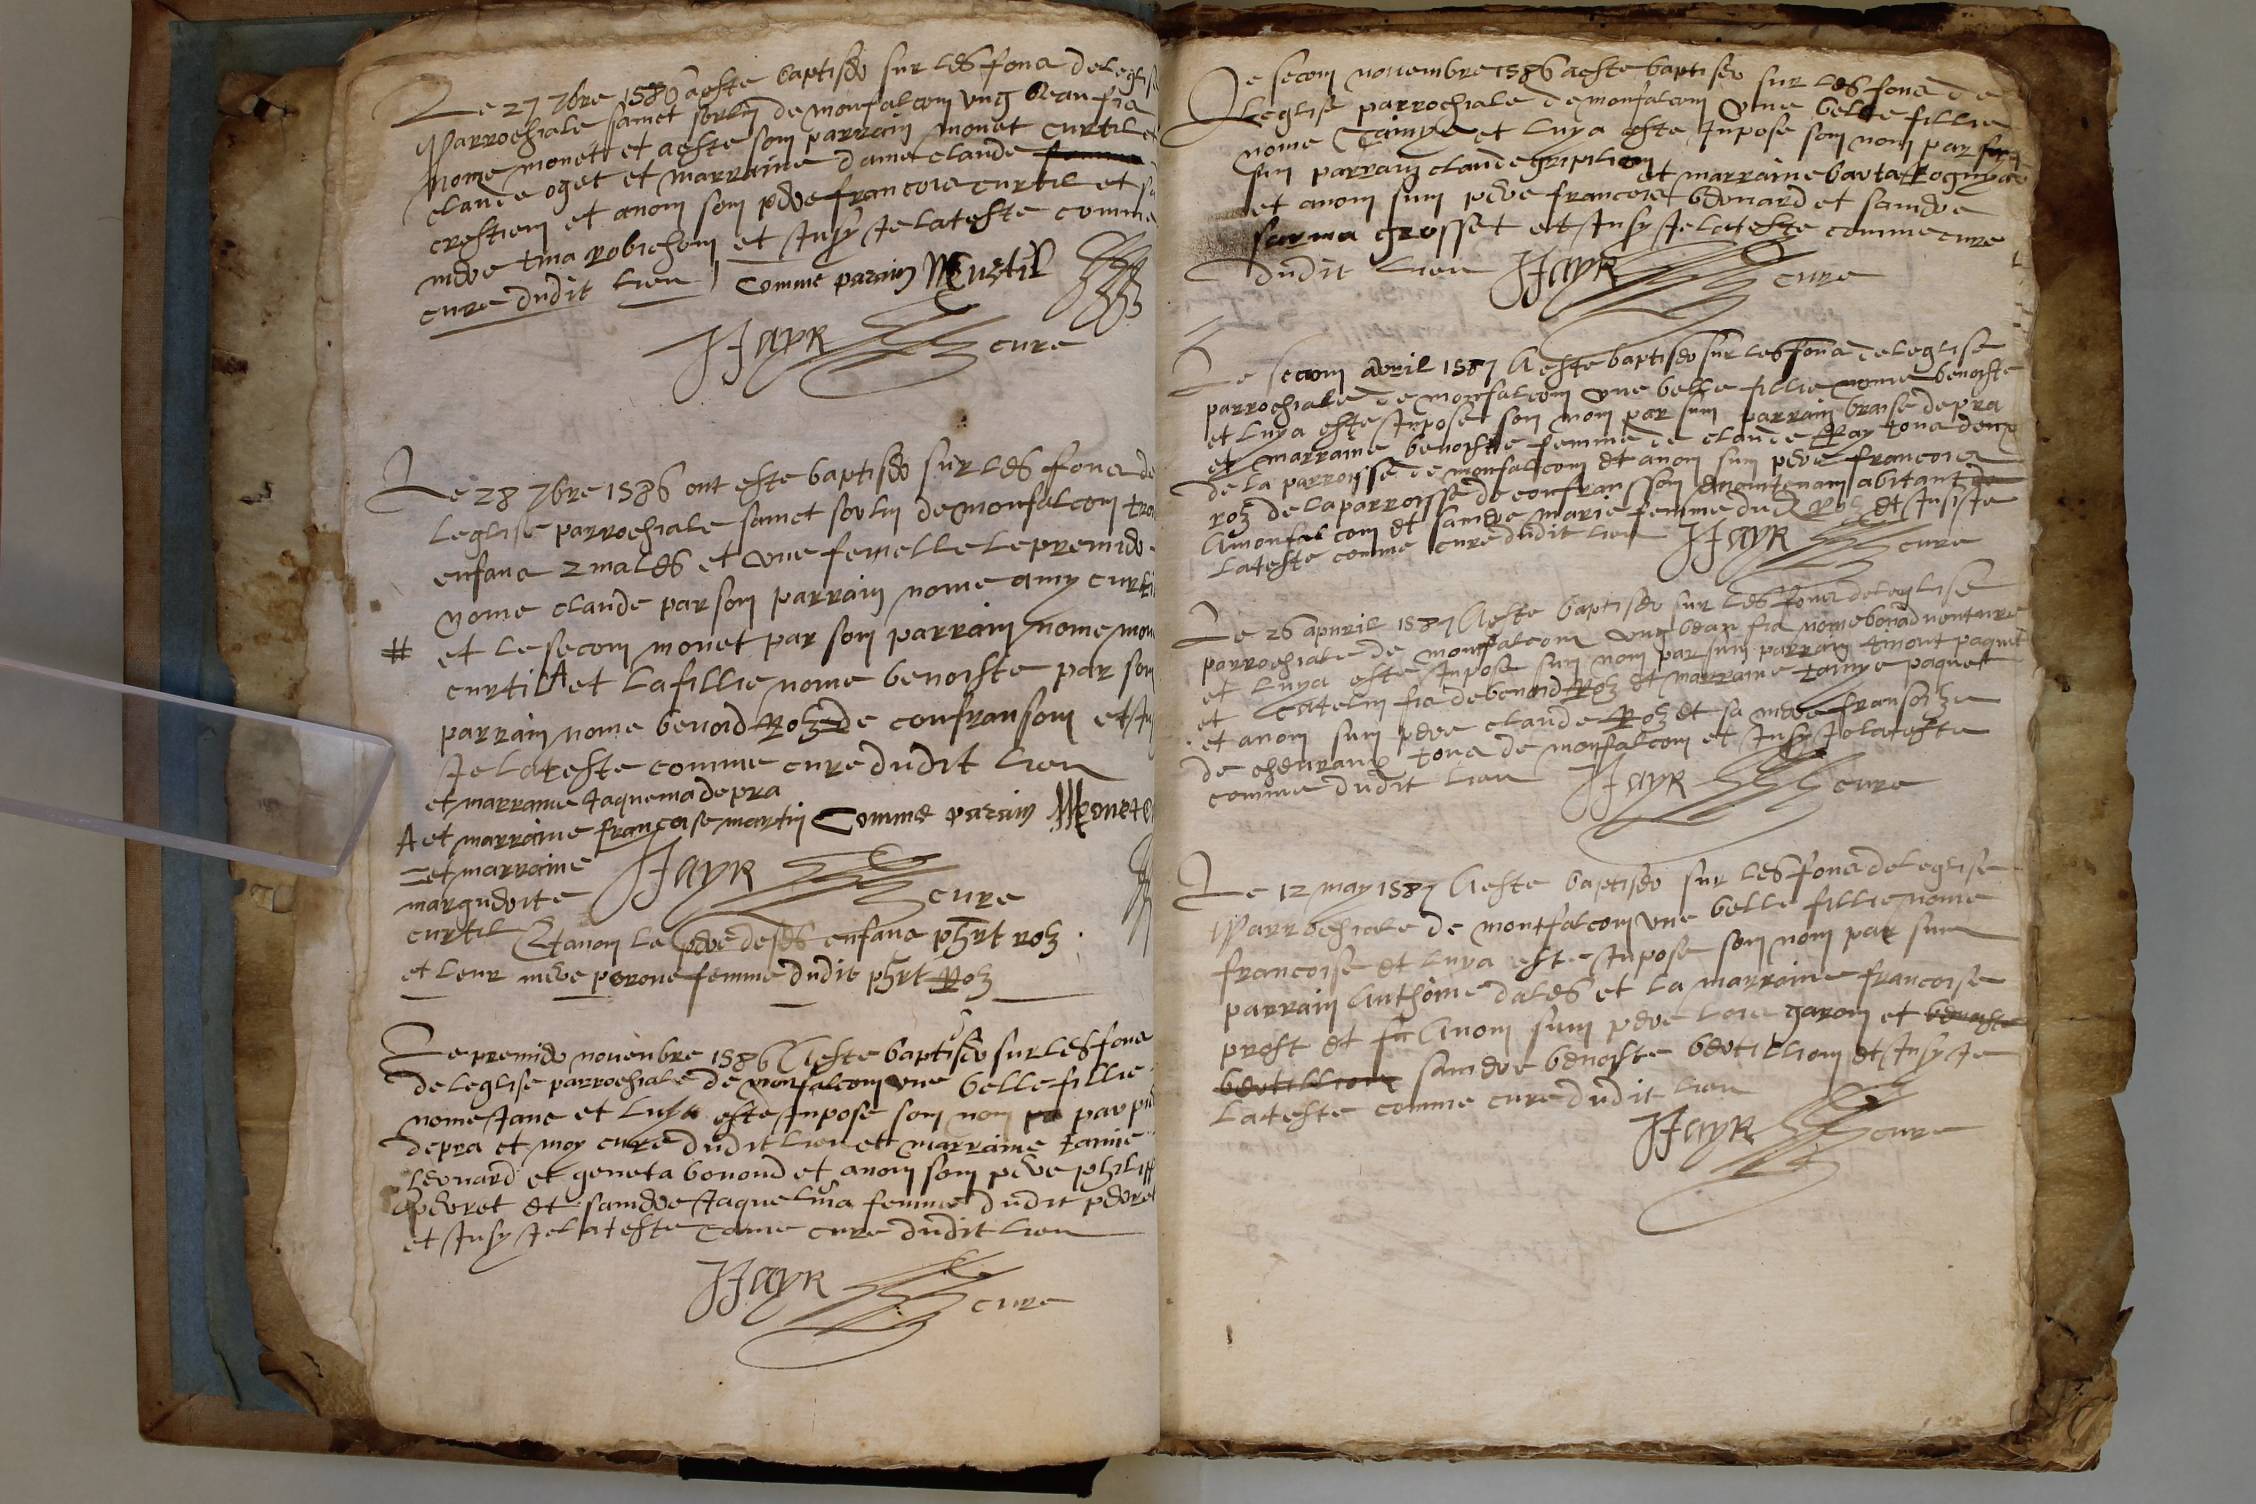 Le 27 7bre 1586 aeste baptise sur les fons de leglise
parrochiale sainct sorlin de monfalcom ung beau fis
nome monet et aeste som parrain monet curtil et
claude oget et marraine dame claude
crestiem et anom som pere francois curtil et sa
mere tina robichom et Insy Ie lateste comme
cure dudit lieu Comme parain M Curtil
JJayR cure
Le 28 7bre 1586 ont este baptise sur les fons de
leglise parrochiale sainct sorlin de monfalcom troi
enfans 2 males et une femelle le premier
nome claude par som parrain nome amy curti
# et le secom monet par som parrain nome mon
curtil A et la fillie nome benoiste par som
parrain nome benoid Roz de confransom et In
Ie lateste comme cure dudit lieu
et marraine Jaquema depra
A et marraine francoise martin Comme parain Monet C
= et marraine
marguerite
curtil
JJayR cure
Et anom le pere desdis enfans phrt roz
et leur mere perone femme dudit phrt Roz
Le premier novenbre 1586 Aeste baptise sur les fons
de leglise parrochiale de monfalcom une belle fillie
nome Jane et luya este Inpose som nom par
depra et moy cure dudit lieu et marraine tanie
leonard et geneta bonond et anom som pere philip
pevret et sa mere Jaquelina femme dudit pevre
et Insy Ie lateste come cure dudit lieu
JJayR cure
Le secom novembre 1586 aeste baptise sur les fons de
leglise parrochiale de monfalcom une belle fillie
nome tainye et luya este Inpose som nom par
sun parrain claude gripiliom et marraine barta Rognyar
et anom sum pere francois berard et sa mere
sarma grosset et Insy Ie lateste comme cure
dudit lieu JJayR cure
Le secom avril 1587 Aeste baptise sur les fons de leglise
parrochiale de monfalcom une belle fillie nome benoiste
et luya este Inpose som nom par sum parrain braise depra
et marraine benoiste femme de claude Ray tous deux
de la parroisse de monfalcom et anom sum pere francois
roz de la parroisse de confranssom et maintenam abitant
Amonfalcom et sa mere marie femme dud Roz et Insi Ie
lateste comme cure dudit lieu JJayR cure
Le 26 apvril 1587 Aeste baptise sur les fons de leglise
parrochiale de monfalcom ung beau fis nome bonadventure
et luya este Inpose sum nom par sum parrain timont paquet
et catelin fis de benoid Roz et marraine tainye paquet
et anom sum pere claude Roz et sa mere fransoize
de cheuraux tous de monfalcom et Insy Ie lateste
comme dudit lieu JJayR cure
Le 12 may 1587 Aeste baptise sur les fons de leglise
parrochiale de montfalcom une belle fillie nome
francoise et luya este Inpose som nom par sum
parrain Anthoine dales et la marraine francoise
prost et Anom sum pere lois garom et benoiste
bertilliom sa mere benoiste bertilliom et Insy Ie
lateste comme cure dudit lieu
JJayR cure